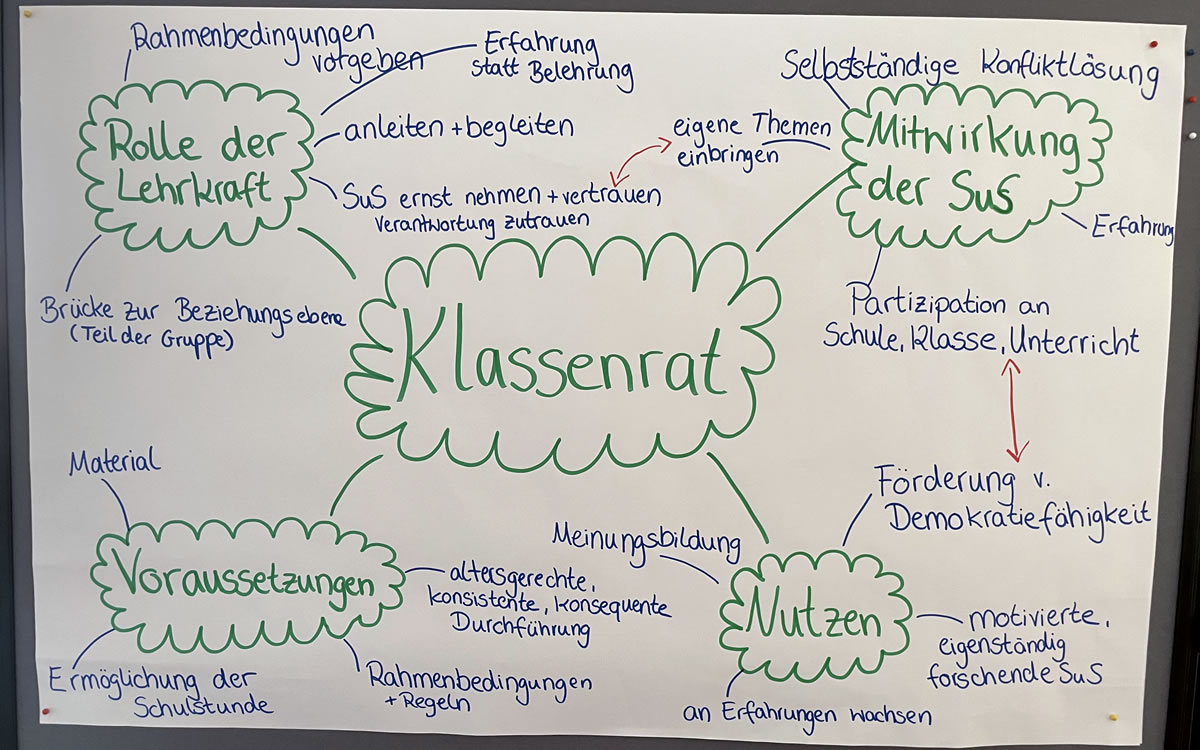 Rahmenbedingungen
vorgeben
Erfahrung
statt Belehrung
Rolle der
Lehrkraft
anleiten + begleiten
SuS ernst nehmen + vertrauen
Verantwortung zutrauen
Brücke zur Beziehungsebene
(Teil der Gruppe)
Selbstständige Konfliktlösung
eigene Themen
einbringen
Mitwirkung
der SuS
Erfahrung
Partizipation an
Schule, Klasse, Unterricht
Klassenrat
Material
Voraussetzungen
altersgerechte,
konsistente, konsequente
Durchführung
Ermöglichung der
Schulstunde
Rahmenbedingungen
+ Regeln
Förderung v.
Demokratiefähigkeit
Meinungsbildung
Nutzen
motivierte,
eigenständig
forschende SuS
an Erfahrungen wachsen